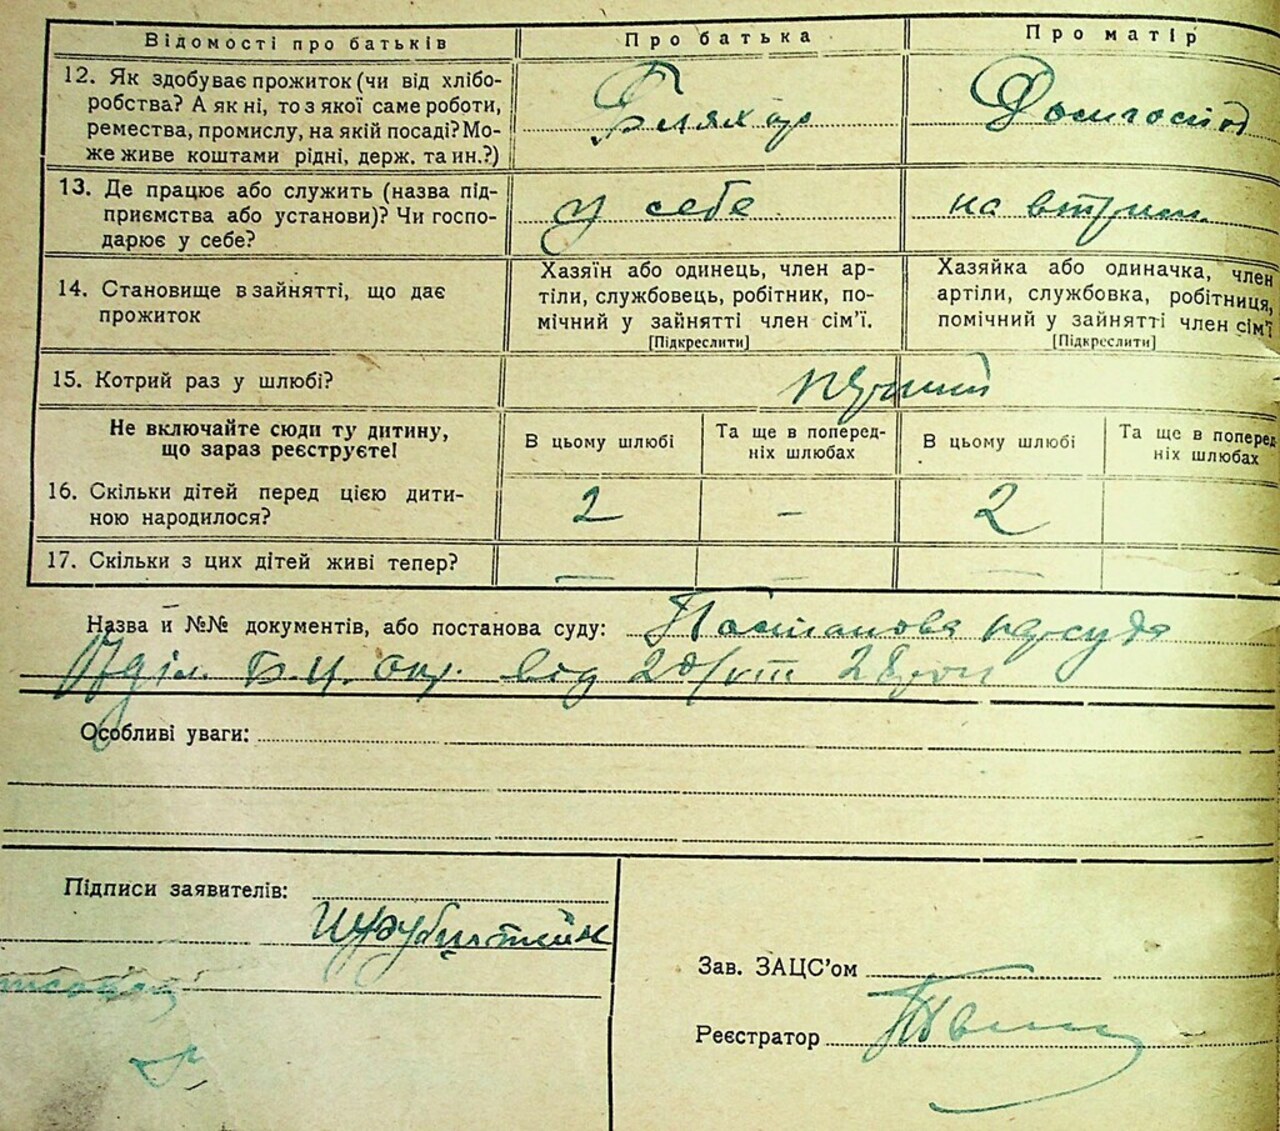 Відомості про батьків
Про батька
Про матір
12. Як здобуває прожиток (чи від хлібо-
робства? А як ні, то з якої саме роботи,
ремества, промислу, на якій посаді? Мо-
же живе коштами рідні, держ. та ин.?)
Бляхар
Домгоспод
13. Де працює або служить (назва під-
приємства або установи)? Чи госпо-
дарює у себе?
у себе
на втрим.
14. Становище в зайнятті, що дає
прожиток
Хазяїн або одинець, член ар-
тіли, службовець, робітник, по-
мічний у зайнятті член сім'ї.
[Підкреслити]
Хазяйка або одиначка, член
артіли, службовка, робітниця,
помічний у зайнятті член сім'ї
[Підкреслити]
15. Котрий раз у шлюбі?
перший
Не включайте сюди ту дитину,
що зараз реєструєте!
В цьому шлюбі
Та ще в поперед-
ніх шлюбах
В цьому шлюбі
Та ще в поперед-
ніх шлюбах
16. Скільки дітей перед цією дити-
ною народилося?
2
-
2
17. Скільки з цих дітей живі тепер?
—
—
—
Назва й №№ документів, або постанова суду: Постанова нарсуда
діл. Б.Ц. окр. від 20/VIII 28 рок
Особливі уваги:
Підписи заявителів:
Зав. ЗАЦС'ом
Реєстратор